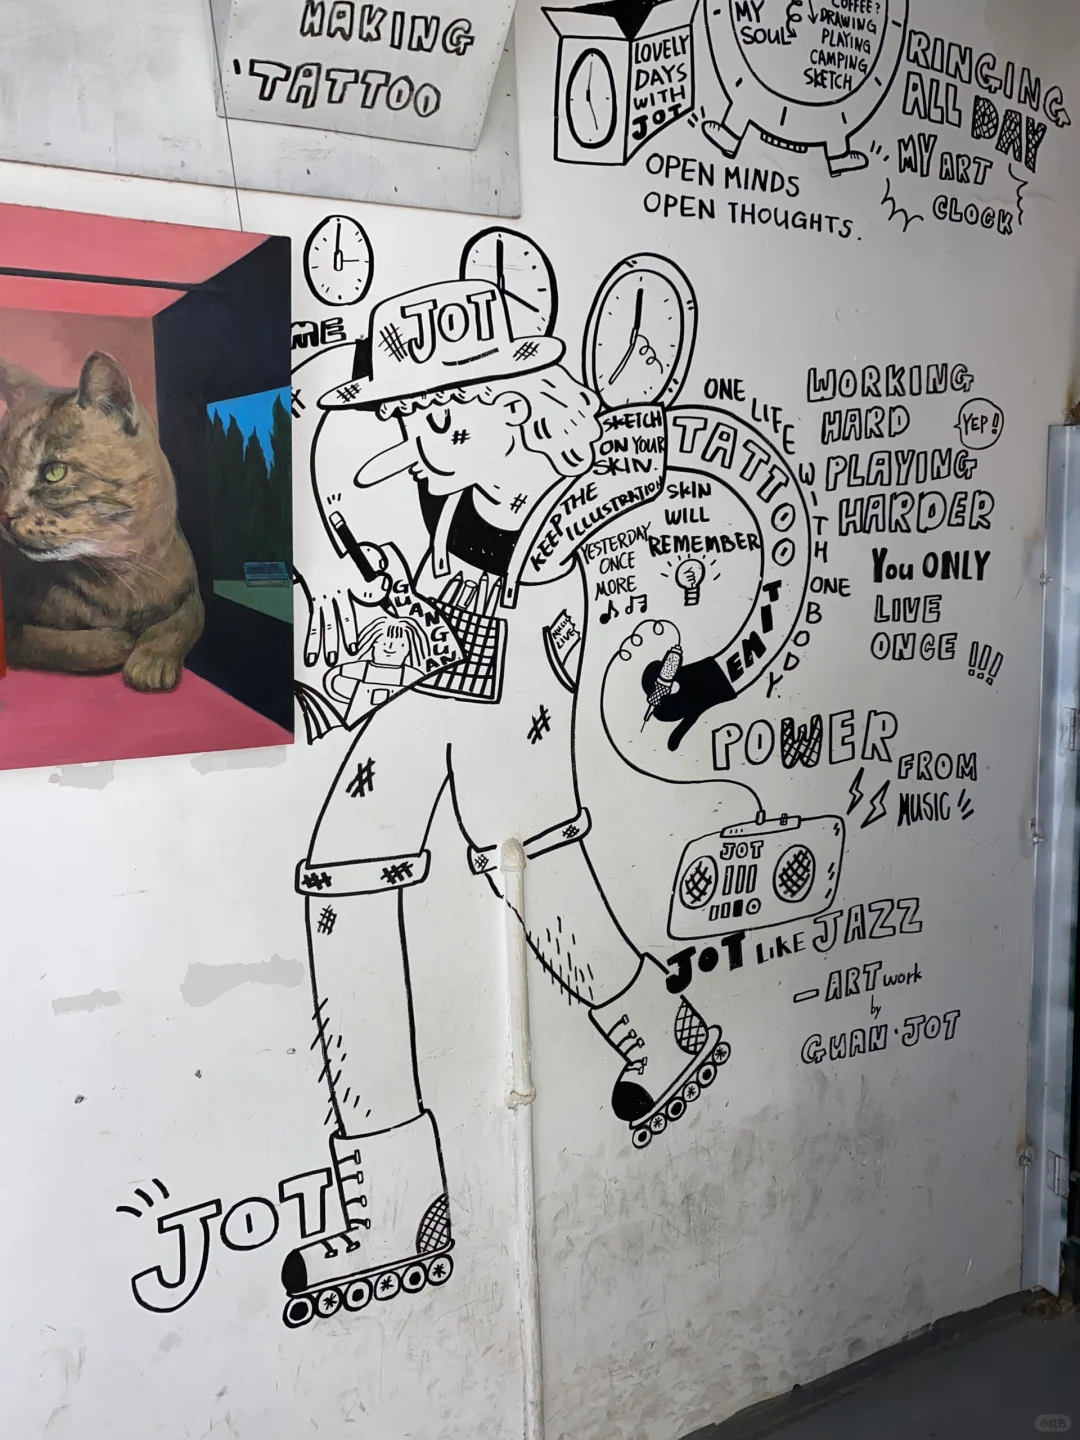 MAKING
TATTOO
LOVELY
DAYS
WITH
JOT
MY
SOUL
COFFEE?
DRAWING
PLAYING
CAMPING
SKETCH
RINGING
ALL DAY
MY ART
CLOCK
OPEN MINDS
OPEN THOUGHTS.
ME
JOT
SKETCH
ON YOUR
SKIN.
KEEP THE
ILLUSTRATION
TATTOO TIME
ONE LIFE WITH ONE BODY
SKIN
WILL
REMEMBER
YESTERDAY
ONCE
MORE
GUANGUAN
MUSIC
LIVE
WORKING
HARD
YEP!
PLAYING
HARDER
You ONLY
LIVE
ONCE !!!
POWER
FROM
MUSIC
JOT
JOT LIKE JAZZ
— ART work
by
GUAN·JOT
JOT
小红书